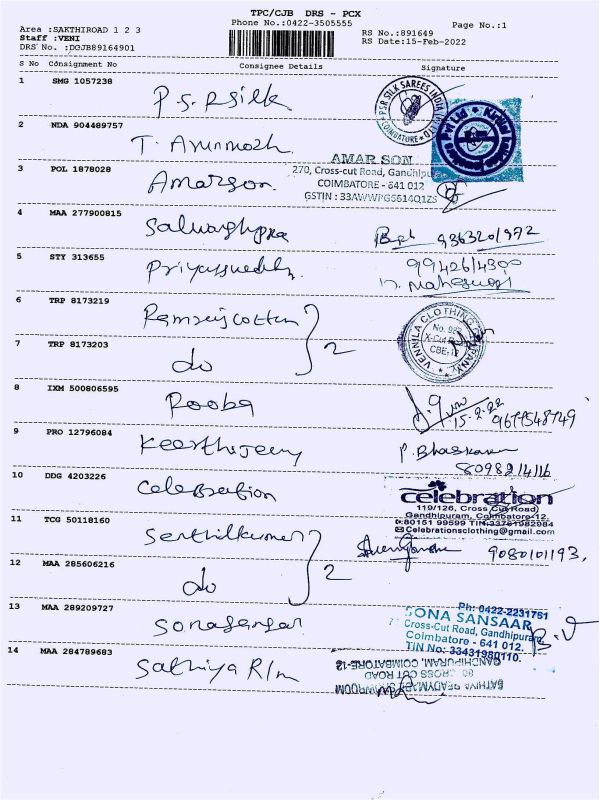 TPC/CJB DRS - PCX
Phone No.:0422-3505555
Page No.:1
Area :SAKTHIROAD 1 2 3
Staff :VENI
DRS No. :DGJB89164901
RS No.:891649
RS Date:15-Feb-2022
S No Consignment No Consignee Details Signature
1 SMG 1057238
P.S.R silk
P.S.R SILK SAREES INDIA
COIMBATORE
2 NDA 904489757
T. Arunmozh
3 POL 1878028
Amarson
AMAR SON
270, Cross-cut Road, Gandhipu
COIMBATORE - 641 012
GSTIN : 33AWWPG6614Q1ZS
4 MAA 277900815
9363201972
5 STY 313655
9942614300
n. maheswari
6 TRP 8173219
Ramrajcotton
VENNILA CLOTHING COMPANY
X-Cut Road
CBE-12
7 TRP 8173203
do 2
8 IXM 500806595
Pooba
15-2-22 9677548749
9 PRO 12796084
Keerthijeeny
P. Bhaskaran
8098214116
10 DDG 4203226
Celebration
celebration
119/126, Cross Cut Road)
Gandhipuram, Coimbatore-12.
✆:80151 99599 TIN:33781982984
✉Celebrationsclothing@gmail.com
11 TCG 50118160
Senthilkumar
9080101193,
12 MAA 285606216
do 2
13 MAA 289209727
Sonasansar
Ph: 0422-2231761
SONA SANSAAR
Cross-Cut Road, Gandhipuram
Coimbatore - 641 012.
TIN No: 33431980110.
14 MAA 284789683
Sathiya R/m
SATHIYA READYMADE SHOWROOM
80 CROSS CUT ROAD
GANDHIPURAM, COIMBATORE-12